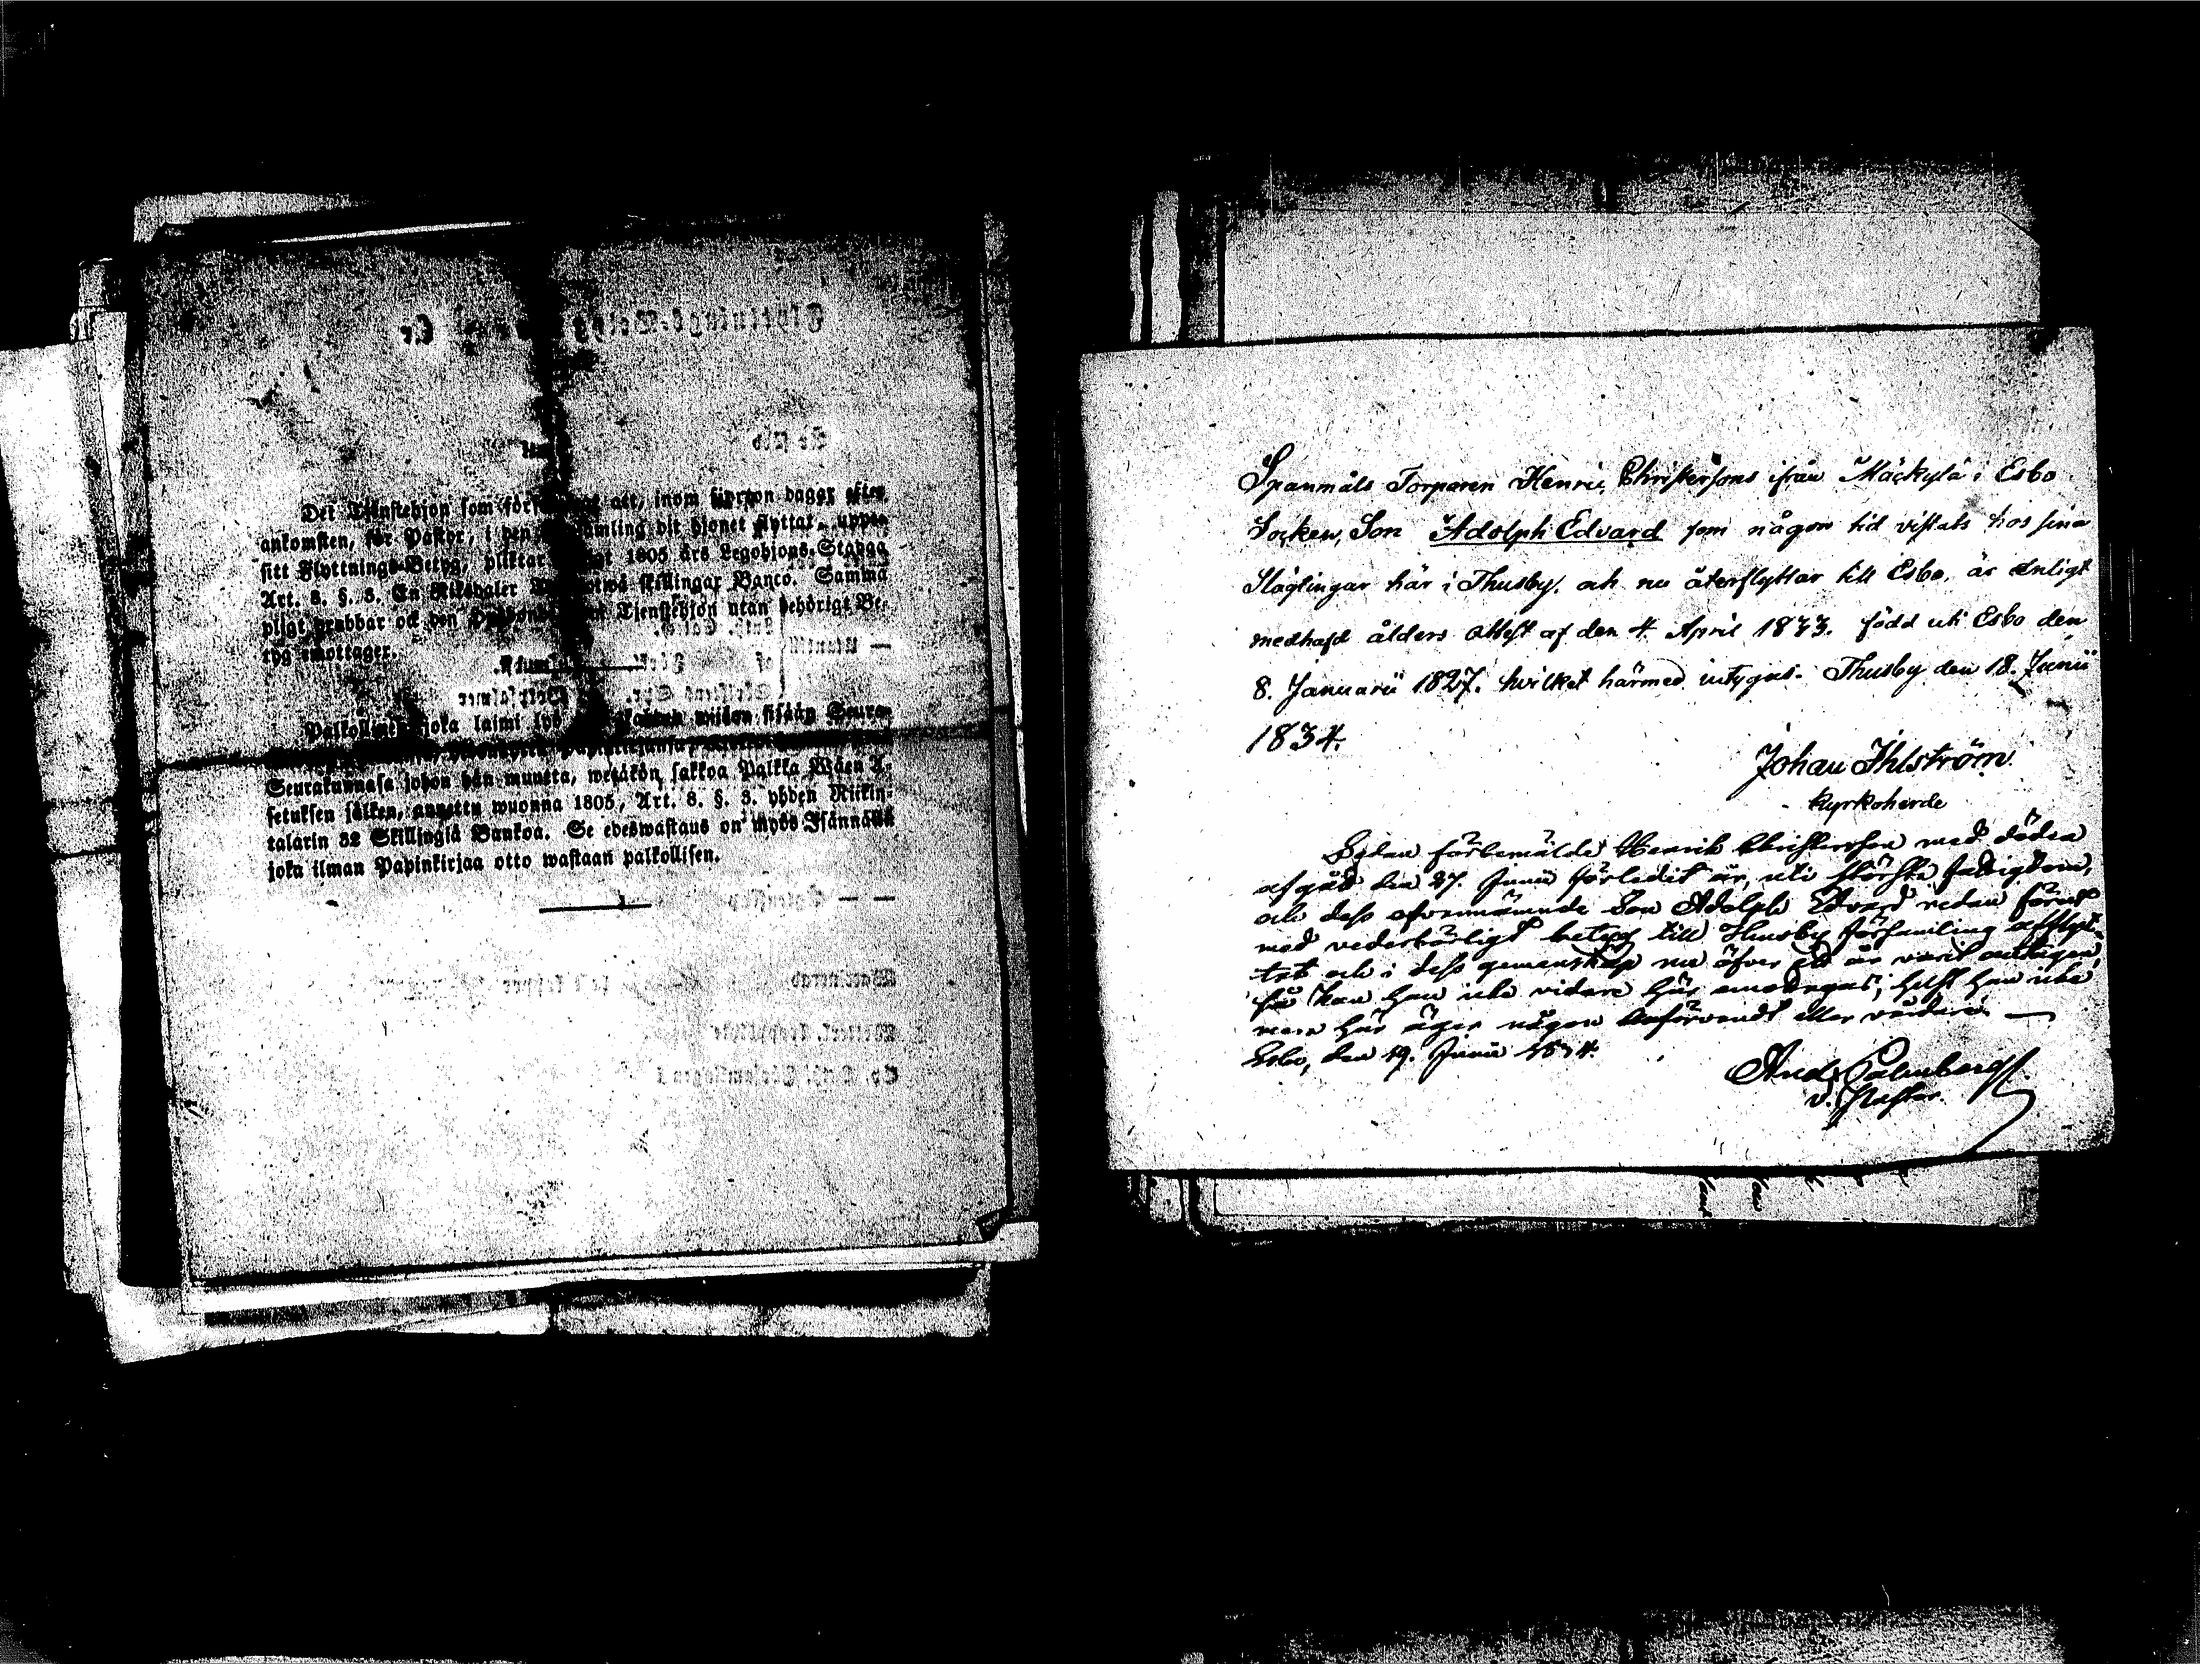 Det Tjenstehjon som att, inom fjorton dagar efter
ankomsten, för Pastor, i den dit hjonet flyttat, uppte
sitt Flyttnings-Betyg, pliktar 1805 års Legohjons-Stadga
Art. 8. §. 3. En Riksdaler skillingar Banco. Samma
pligt drabbar ock den Tjenstehjon utan behörigt Be-
tyg emottager.
Palkollinen joka laimi lyö sisään Seura-
Seurakunnasa johon hän muutta, wetäkön sakkoa Palkka Wäen A-
setuksen jälken, annettu wuonna 1805, Art. 8. §. 3. yhden Riikin-
talarin 32 Skillingiä Bankoa. Se edeswastaus on myös Isännällä
joka ilman Papinkirjaa otto wastaan palkollisen.
Spanmåls Torparen Henric Christersons ifrån Mäckylä i Esbo
Socken, Son Adolph Edvard som någon tid vistats hos sina
Slägtingar här i Thusby, och nu återflyttar till Esbo, är enligt
medhafd ålders attest af den 4 April 1833. född uti Esbo den
8. Januarii 1827. hvilket härmed intygas. Thusby den 18. Junii
1834.
Johan Ihlström
Kyrkoherde
Sedan förbemälde Henrik Christersson med döden
afgått den 27. Junii förledit år, uti största fattigdom,
och dess ofvannämnde Son Adolph Edvard redan förut
med vederbörligt betyg till Thusby församling afflyt-
tat och i dess gemenskap nu öfver ett år varit antagen,
så kan han icke vidare här emottagas, helst han icke
mera här äger någon anförvandt eller vårdare. —
Esbo, den 19. Junii 1834.
And. Palmberg
v. Pastor.